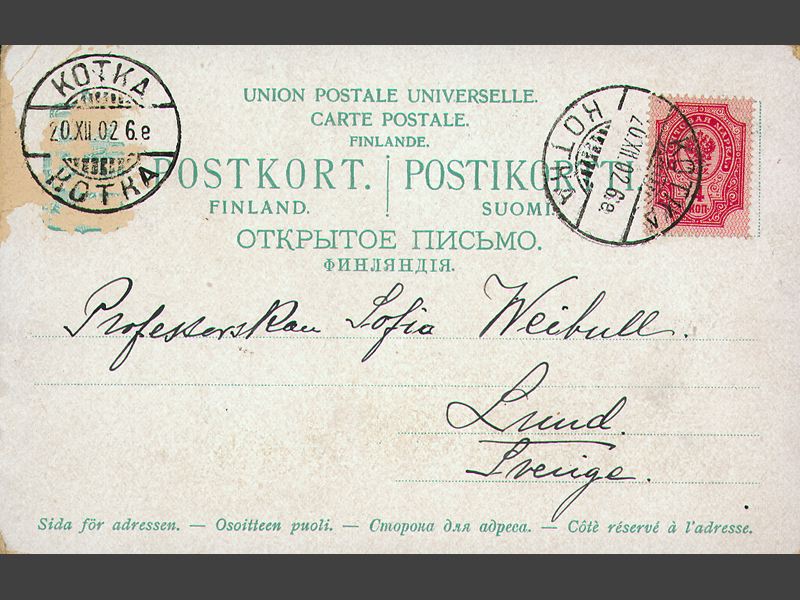 KOTKA
20.XII.02 6.e
KOTKA
UNION POSTALE UNIVERSELLE.
CARTE POSTALE.
FINLANDE.
POSTKORT. POSTIKORTTI
FINLAND. SUOMI
ОТКРЫТОЕ ПИСЬМО.
ФИНЛЯНДІЯ.
KOTKA
20.XII.02 6.e
KOTKA
КОП
Professorskan Sofia Weibull.
Lund.
Sverige.
Sida för adressen. — Osoitteen puoli. — Сторона для адреса. — Côtè réservé à l'adresse.